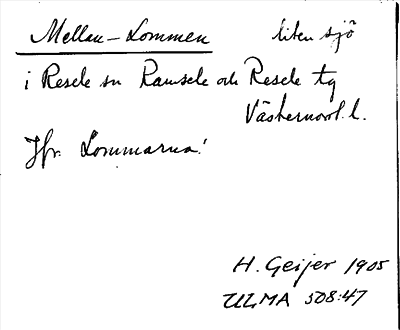 Mellan-Lommen liten sjö
i Resele sn Ramsele och Resele tg
Västernorrl. l.
Jfr. Lommarna!
H. Geijer 1905
ULMA 508:47